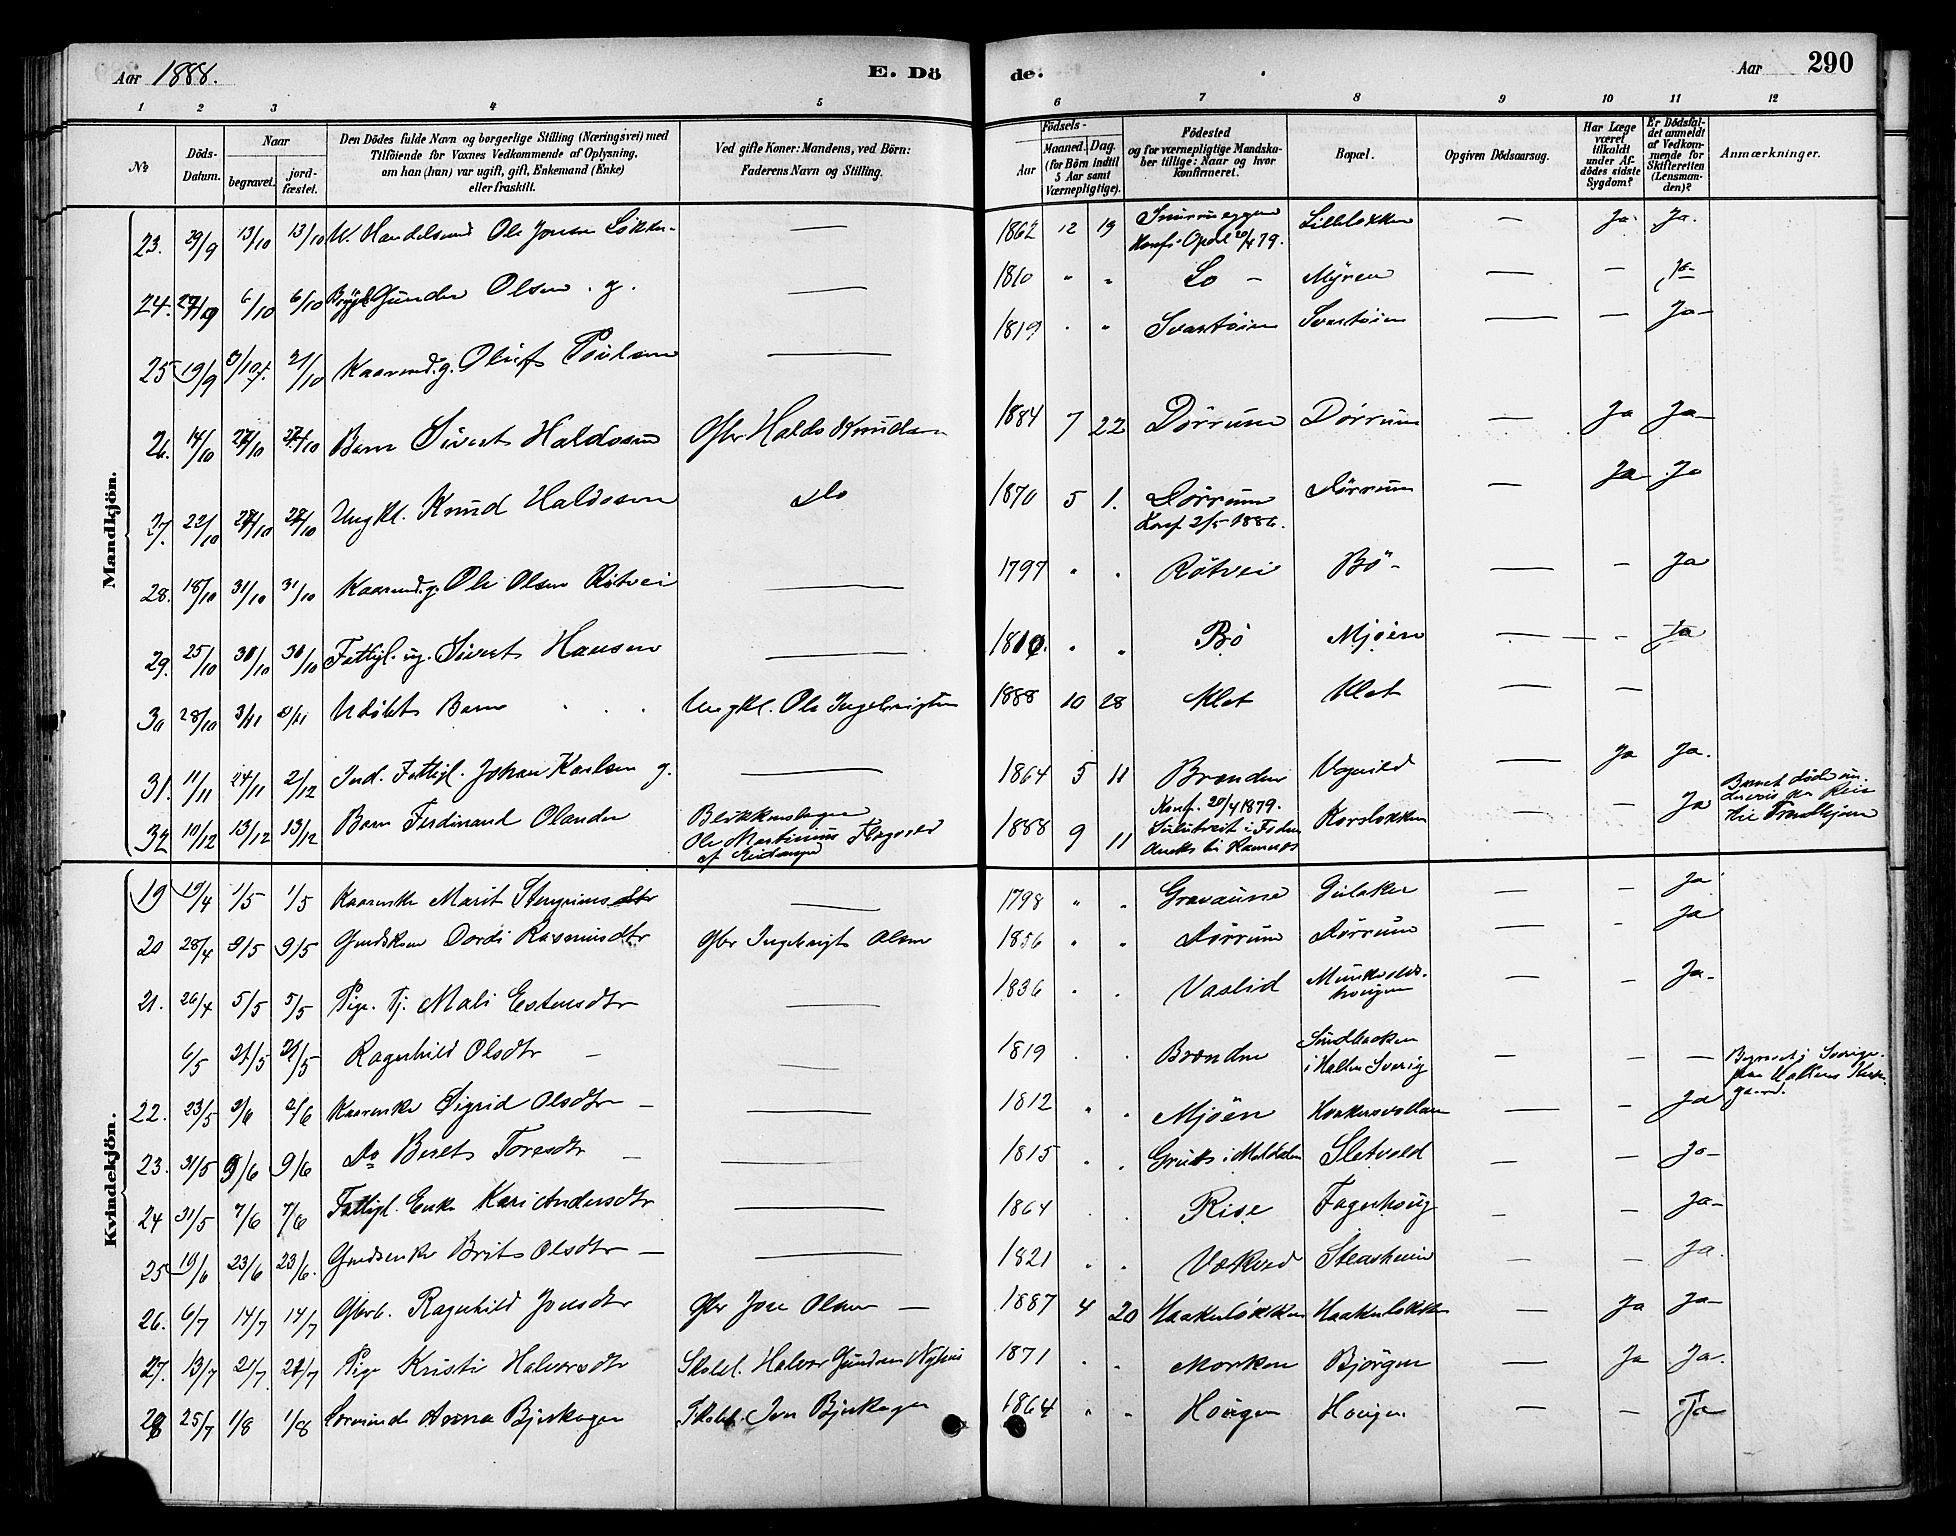 Aar 1888. E. Dö
de. Aar 290
1 2 3 4 5 6 7 8 9 10 11 12
No
Döds-Datum.
Naar
begravet.
jord-fæstet.
Den Dödes fulde Navn og borgerlige Stilling (Næringsvei) med
Tilföiende for Voxnes Vedkommende af Oplysning,
om han (hun) var ugift, gift, Enkemand (Enke)
eller fraskilt.
Ved gifte Koner: Mandens, ved Börn:
Faderens Navn og Stilling.
Födsels-
Aar
Maaned. Dag.
(for Börn indtil
5 Aar samt
Værnepligtige).
Födested
og for værnepligtige Mandska-
ber tillige: Naar og hvor
konfirmeret.
Bopæl.
Opgiven Dödsaarsag.
Har Læge
været
tilkaldt
under Af-
dödes sidste
Sygdom?
Er Dödsfal-
det anmeldt
af Vedkom-
mende for
Skifteretten
(Lensman-
den)?
Anmærkninger.
Mandkjön.
23. 29/9 13/10 13/10 U. Handelsmd Ole Jonsen Løkken — 1862 12 19 Konf. Opdal 20/4 79. Lilleløkken — Ja. Ja.
24. 27/9 6/10 6/10 Gunder Olsen. g. — 1810 " " Lo — Myren — — Ja
25 19/9 2/10 Kaarmd. g. Oluf Povlsen — 1819 " " Svartøien Svartøien — — Ja
26. 14/10 27/10 27/10 Barn Sivert Haldosen Gbr Haldo Knudsen 1884 7 22 Dørrum Dørrum — Ja Ja
27. 22/10 27/10 27/10 Ungkl. Knud Haldosen Do 1870 5 1. Dørrum Dørrum — Ja Ja
Konf. 2/5 1886.
28. 18/10 31/10 31/10 Kaarmd. g. Ole Olsen Røtvei — 1797 " " Røtvei Bö — — Ja
29. 25/10 30/10 30/10 Fattigl. ug. Sivert Hansen — 1810. " " Bö Mjøen — — Ja
30 28/10 3/11 3/11 Udøbt Barn Ungkl. Ole Ingebrigtsen 1888 10 28 Klet Klet — —
31. 11/11 24/11 2/12 Ind. Fattigl. Johan Karlsen g. — 1864 5 11 Brænden Vognild — Ja Ja.
Konf. 20/4 1879.
32 10/12 13/12 13/12 Barn Ferdinand Olander Blikkenslager 1888 9 11 Korsløkken — — Ja
Ole Martinius
Barnet døde un-
derveis paa Reise
til Trondhjem
Kvindekjön.
19 19/4 1/5 1/5 Kaarenke Marit Stengrimsdtr — 1798 " " Gravaune — — Ja
20 28/4 9/5 9/5 Gmdskone Dordi Rasmusdtr Gbr Ingebrigt Olsen 1856 " " Dørrum Dørrum — — Ja
21. 26/4 5/5 5/5 Pige. Tj. Mali Estensdtr — 1836 " " Vaslid — — Ja
6/5 21/5 21/5 Ragnhild Olsdtr — 1819 " " Brænden i Hallen Sverig — — —
Begravet i Sverige
paa Hallens Kirke-
gaard.
22. 23/5 2/6 2/6 Kaarenke Sigrid Olsdtr — 1812 " " Mjøen — — Ja
23. 31/5 9/6 9/6 Do Beret Toresdtr — 1815 " " i Meldalen Sletvold — — Ja
24 31/5 7/6 7/6 Fattigl. Enke Kari Andersdtr — 1864 " " Rise Fagerhoug — — Ja
25 19/6 23/6 23/6. Gmdsenke Brit Olsdtr — 1821 " " Vekved Stensheim — — Ja.
26. 6/7 14/7 14/7 Gbrb. Ragnhild Jonsdtr Gbr Jon Olsen — 1887 4 20 Haakenløkken Haakenløkken — Ja Ja
27. 13/7 21/7 21/7 Pige Kristi Halvorsdtr Skolel. Halvor Gundersen Nyhus 1871 " " Morken Bjørgen — Ja Ja.
28 25/7 1/8 1/8 Anna Bjerkager Skolel. Iver Bjerkager 1864 " " Hougen Hougen — — Ja